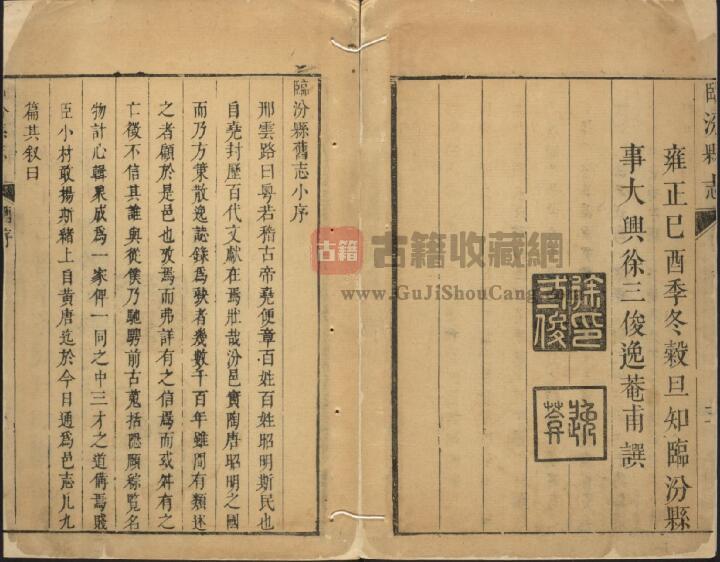 臨汾縣志
雍正己酉季冬穀旦知臨汾縣
事大興徐三俊逸菴甫譔
徐印三俊
逸菴
古籍
古籍收藏網
www.GuJiShouCang
臨汾縣舊志小序
邢雲路曰粵若稽古帝堯便章百姓百姓昭明斯民也
自堯封歷百代文獻在焉壯哉汾邑實陶唐昭明之國
而乃方策散逸誌錄爲歉者幾數千百年雖間有類述
之者顧於是邑也攷焉而弗詳有之信焉而或舛有之
亡徵不信其誰與從僕乃馳騁前古蒐括隱願綜覽名
物計心輯眾成爲一家俾一同之中三才之道備焉賤
臣小材敢揚斯緒上自黃唐迄於今日通爲邑志凡九
篇其叙曰
舊序